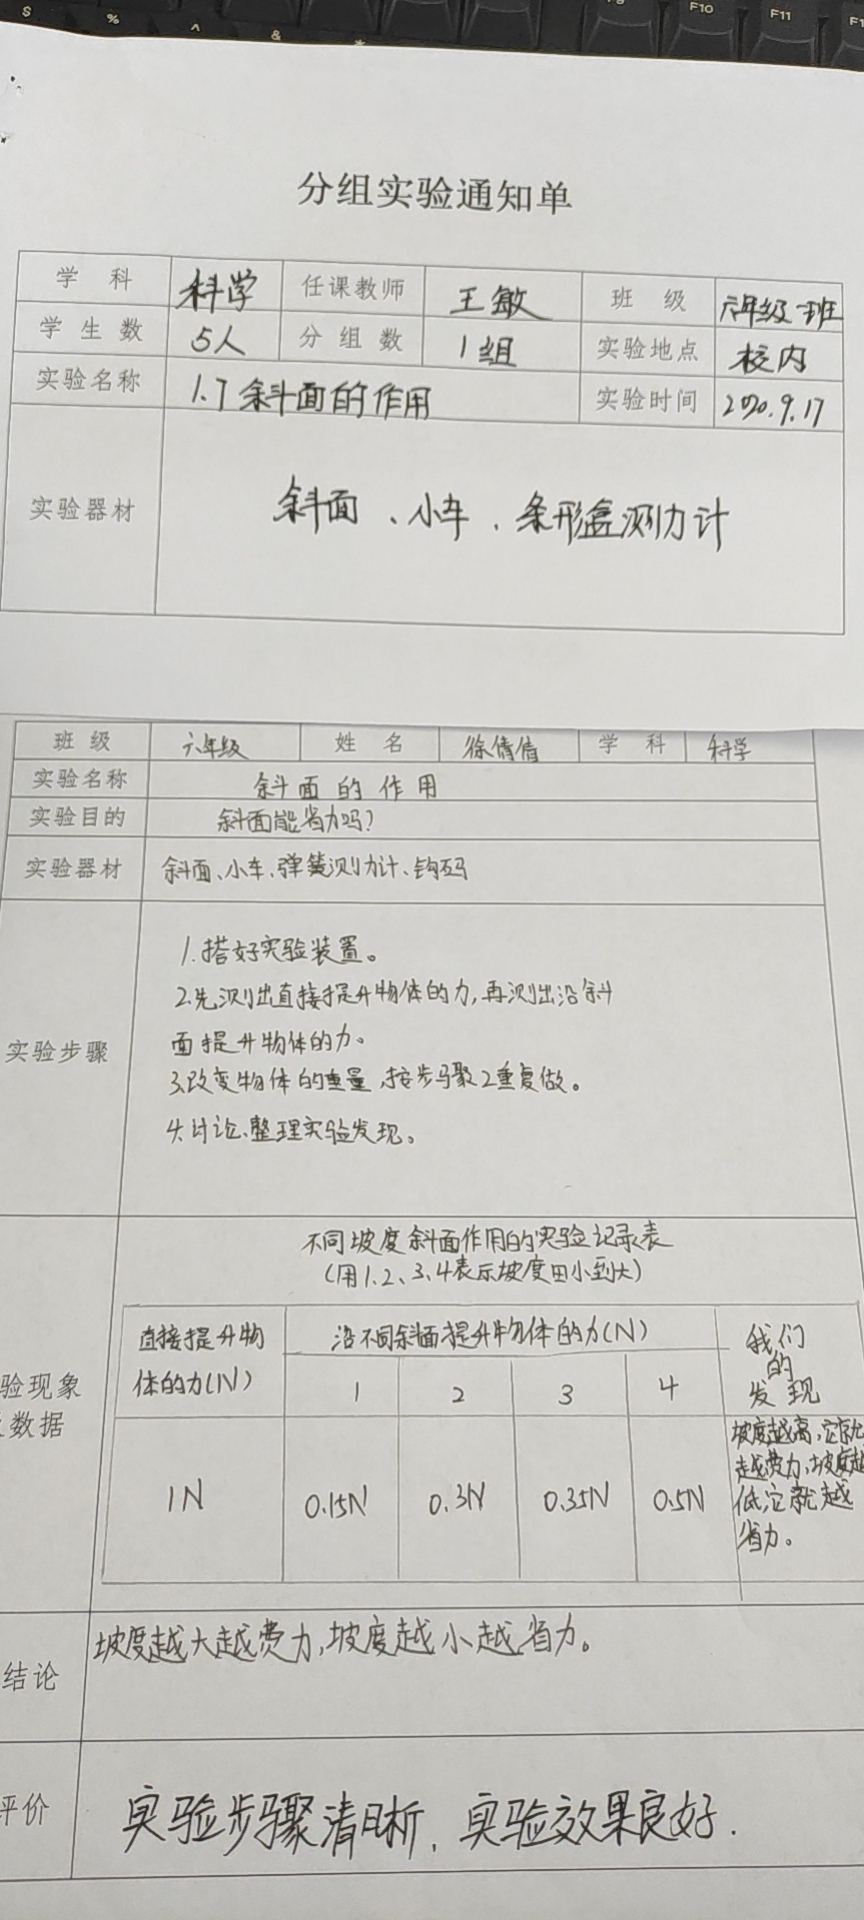 $ % ^ & *
F10 F11
分组实验通知单
学 科 科学 任课教师 王敏 班 级 六年级一班
学 生 数 5人 分 组 数 1组 实验地点 校内
实验名称 1.7斜面的作用 实验时间 2020.9.17
实验器材 斜面、小车、条形盒测力计
班 级 六年级 姓 名 徐倩倩 学 科 科学
实验名称 斜面的作用
实验目的 斜面能省力吗?
实验器材 斜面、小车、弹簧测力计、钩码
实验步骤
1.搭好实验装置。
2.先测出直接提升物体的力,再测出沿斜
面提升物体的力。
3.改变物体的重量,按步骤2重复做。
4.讨论、整理实验发现。
验现象
数据
不同坡度斜面作用的实验记录表
(用1、2、3、4表示坡度由小到大)
直接提升物
体的力(N)
沿不同斜面提升物体的力(N)
1 2 3 4
我们
的
发现
1N 0.15N 0.3N 0.35N 0.5N
坡度越高,它就
越费力,坡度越
低,它就越
省力。
结论 坡度越大越费力,坡度越小越省力。
评价 实验步骤清晰,实验效果良好.